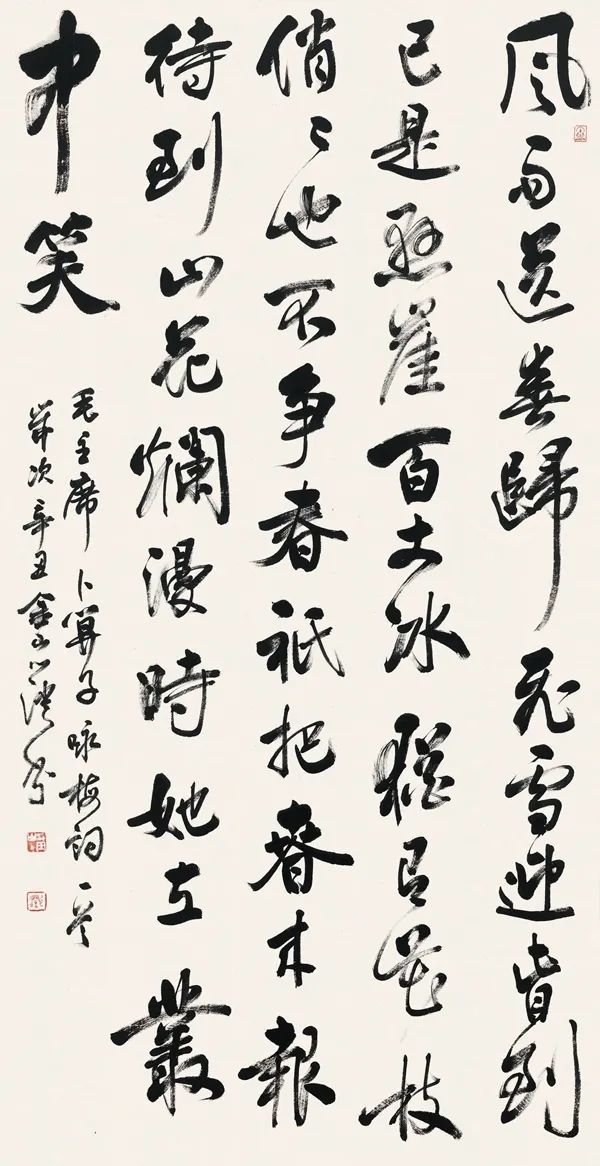 風雨送春歸飛雪迎春到
已是懸崖百丈冰猶有花枝
俏〻也不爭春祇把春來報
待到山花爛漫時她在叢
中笑
毛主席卜算子咏梅詞一首
歲次辛丑